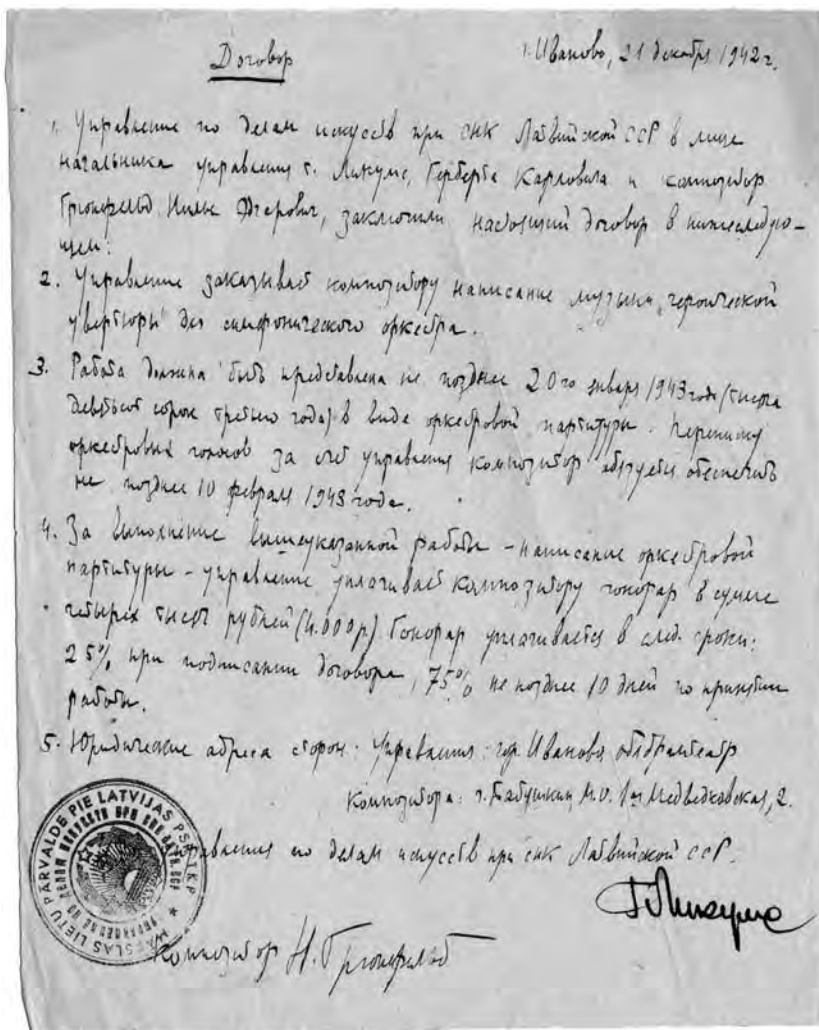 Договор
г. Иваново, 21 декабря 1942 г.
1. Управление по делам искусств при СНК Латвийской ССР в лице
начальника управления т. Ликумс, Герберта Карловича и композитор
Грюнфельд Нильс Эдгарович, заключили настоящий договор в нижеследую-
щем:
2. Управление заказывает композитору написание музыки героической
увертюры для симфонического оркестра.
3. Работа должна быть представлена не позднее 20го января 1943 года (тысяча
девятьсот сорок третьего года) в виде оркестровой партитуры. Переписку
оркестровых голосов за счет управления композитор обязуется обеспечить
не позднее 10 февраля 1943 года.
4. За выполнение вышеуказанной работы – написание оркестровой
партитуры – управление уплачивает композитору гонорар в сумме
четырех тысяч рублей (4.000 р.) Гонорар уплачивается в след. сроки:
25% при подписании договора, 75% не позднее 10 дней по принятии
работы.
5. Юридические адреса сторон: Управления: гор. Иваново, облдрамтеатр
Композитора: г. Бабушкин, М.О. 1ая Медведковская, 2.
Управления по делам искусств при СНК Латвийской ССР.
Г. Ликумс
MĀKSLAS LIETU PĀRVALDE PIE LATVIJAS PSR TKP
УПРАВЛЕНИЕ ПО ДЕЛАМ ИСКУССТВ ПРИ СНК ЛАТВ. ССР
Композитор Н. Грюнфельд